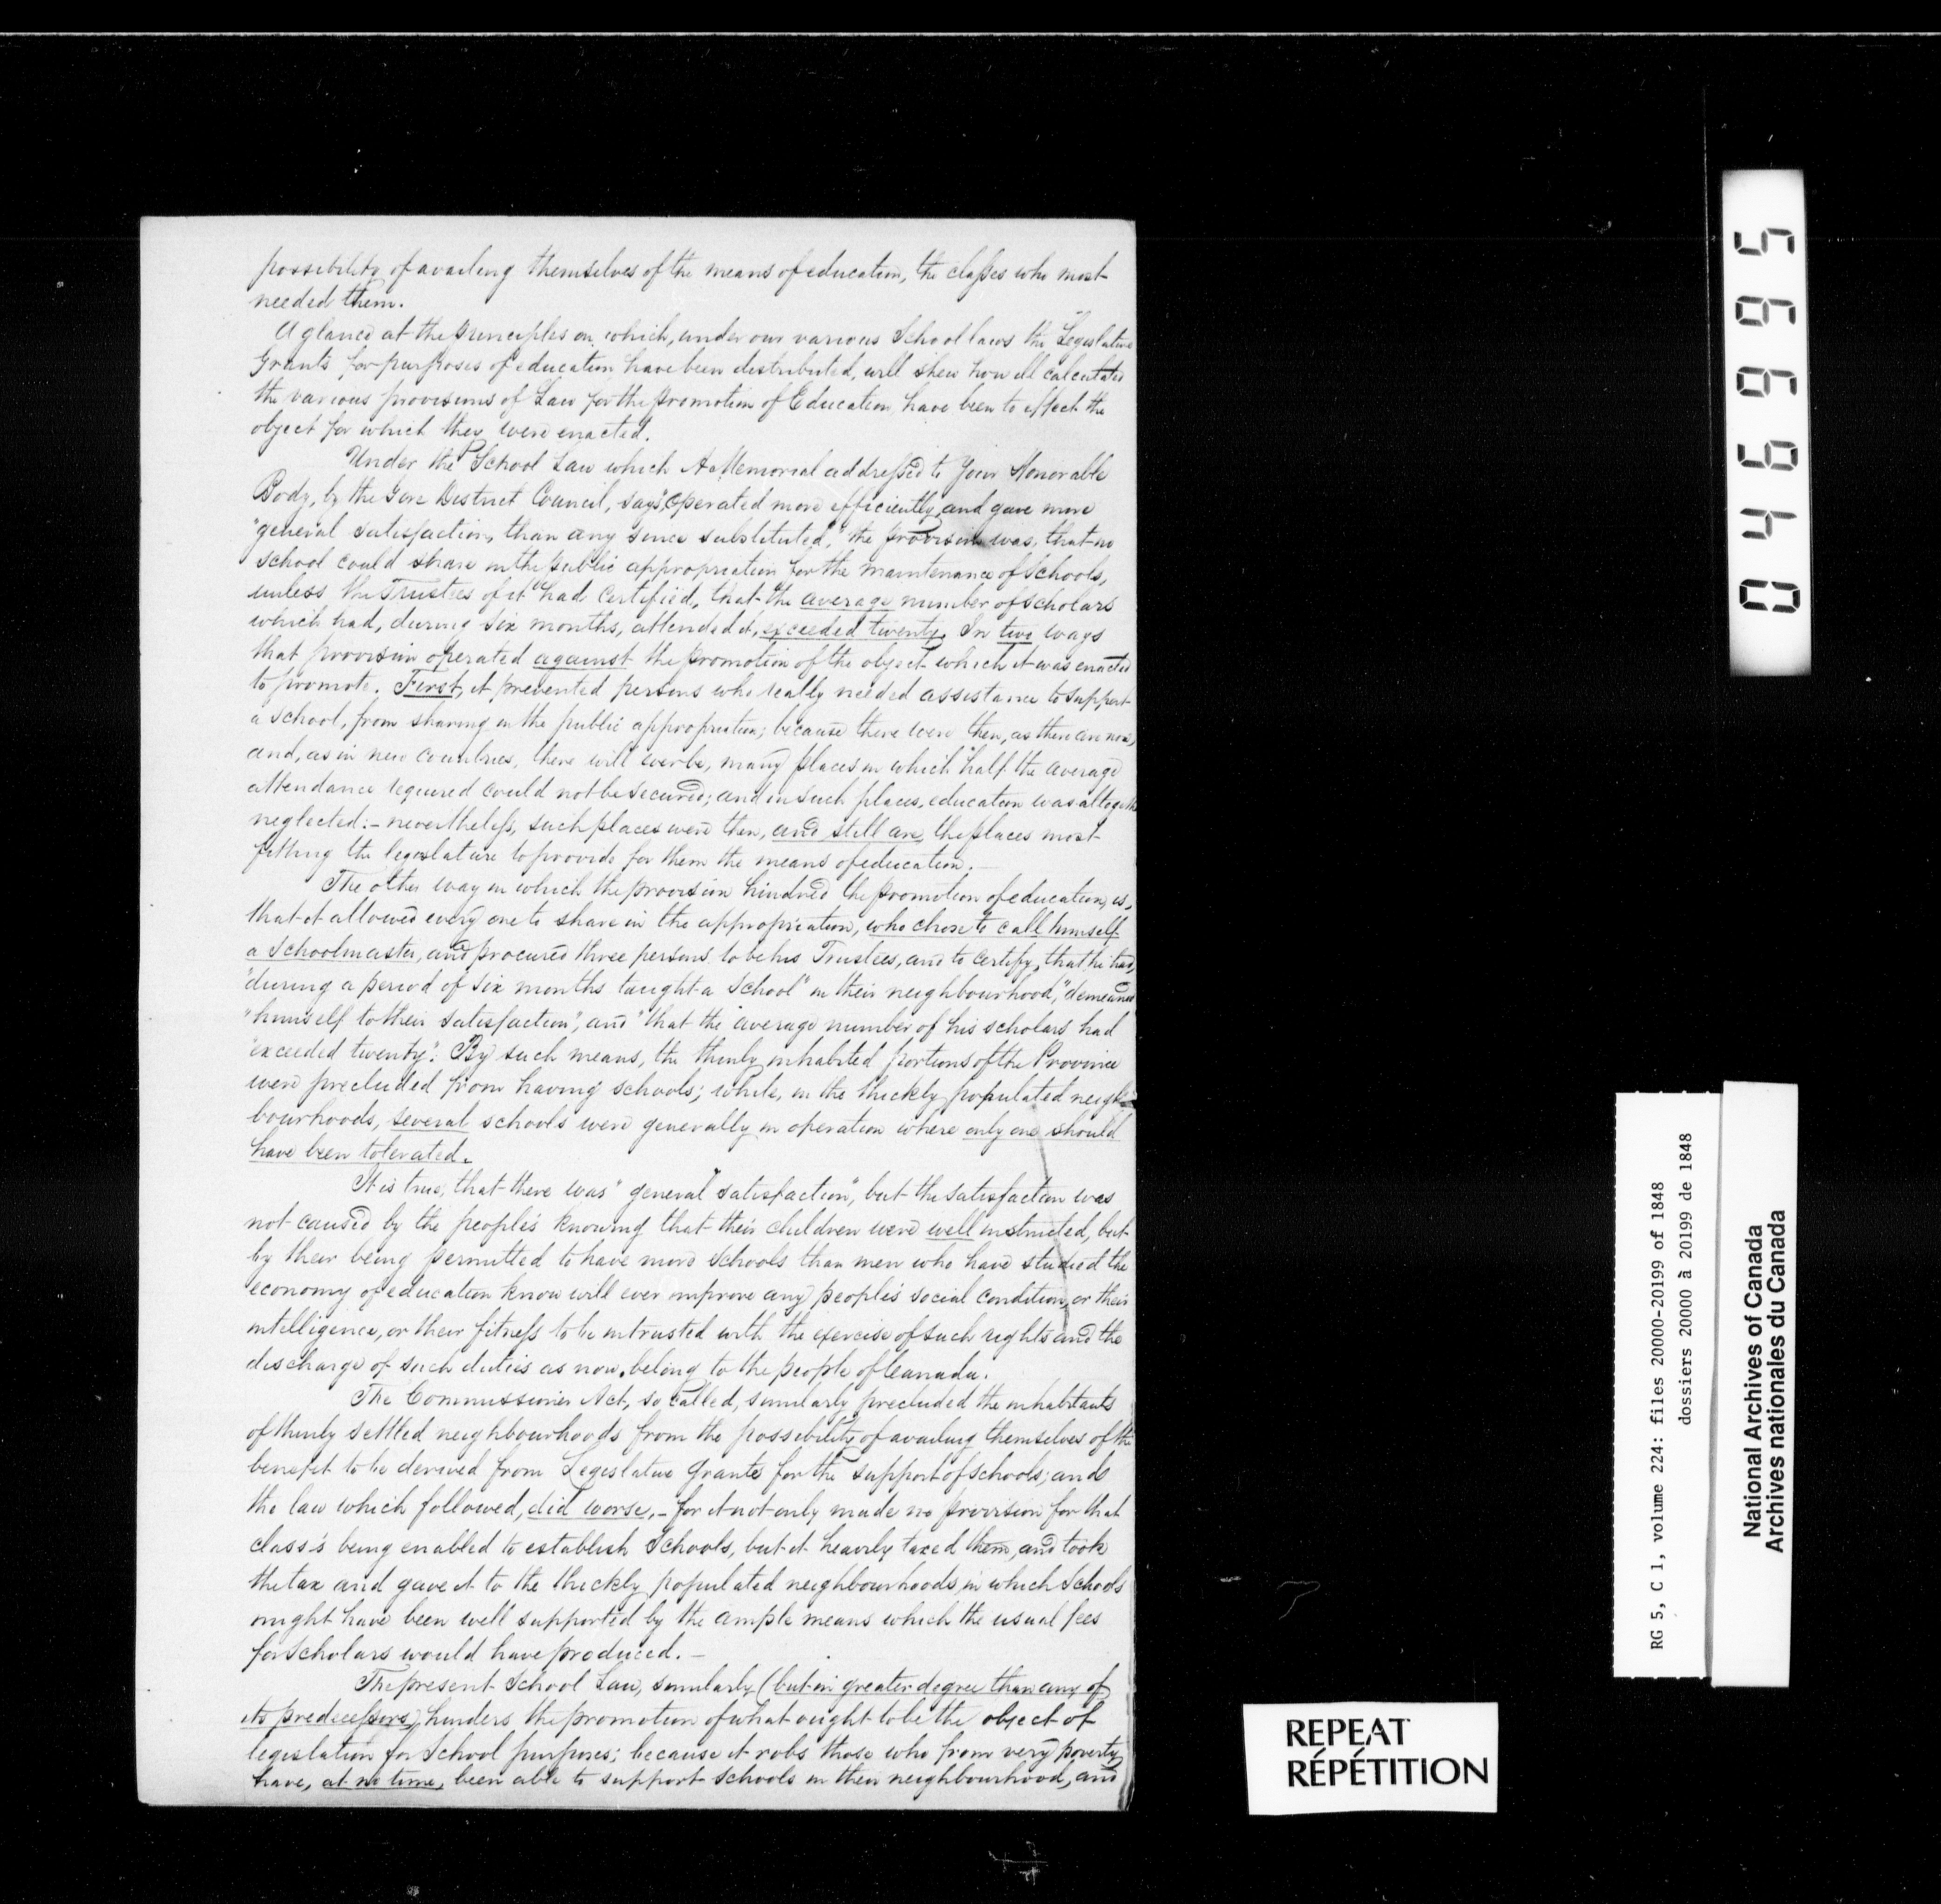 possibility of availing themselves of the means of education, the classes who most
needed them.
A glance at the principles on which, under our various School laws the Legislative
Grants for purposes of education have been distributed, will shew how ill calculated
the various provisions of Law for the promotion of Education have been to effect the
object for which they were enacted.
Under the School Law which A Memorial addressed to Your Honorable
Body, by the Gore District Council, says, "operated more efficiently, and gave more
"general satisfaction, than any since substituted," the provision was, that no
school could share in the public appropriation for the maintenance of Schools,
unless the Trustees of it had certified, that the average number of scholars
which had, during six months, attended it, exceeded twenty. In two ways
that provision operated against the promotion of the object which it was enacted
to promote. First, it prevented persons who really needed assistance to support
a school, from sharing in the public appropriation; because there were then, as there are now,
and, as in new countries, there will ever be, many places in which half the average
attendance required could not be secured; and in such places, education was altogether
neglected:- nevertheless, such places were then, and still are, the places most
fitting the legislature to provide for them the means of education.-
The other way in which the provision hindred the promotion of education, is,
that it allowed every one to share in the appropriation, who chose to call himself
a Schoolmaster, and procured three persons to be his Trustees, and to certify, that he had,
"during a period of six months taught a School" in their neighbourhood, "demeaned
"himself to their satisfaction", and "that the average number of his scholars had
"exceeded twenty". By such means, the thinly inhabited portions of the Province
were precluded from having schools; while, in the thickly populated neigh-
bourhoods, several schools were generally in operation where only one should
have been tolerated.
It is true, that there was "general satisfaction", but the satisfaction was
not caused by the people's knowing that their children were well instructed, but
by their being permitted to have more schools than men who have studied the
economy of education know will ever improve any people's social condition, or their
intelligence, or their fitness to be intrusted with the exercise of such rights and the
discharge of such duties as now belong to the people of Canada.
The Commissioners Act, so called, similarly precluded the inhabitants
of thinly settled neighbourhoods from the possibility of availing themselves of the
benefit to be derived from Legislative Grants for the support of schools; and
the law which followed, did worse,- for it not only made no provision for that
class's being enabled to establish Schools, but it heavily taxed them, and took
the tax and gave it to the thickly populated neighbourhoods, in which Schools
might have been well supported by the ample means which the usual fees
for Scholars would have produced.-
The present School Law, similarly (but in greater degree than any of
its predecessors) hinders the promotion of what ought to be the object of
legislation for School purposes; because it robs those who from very poverty
have, at no time, been able to support Schools in their neighbourhood, and
046995
RG 5, C 1, volume 224: files 20000-20199 of 1848
dossiers 20000 à 20199 de 1848
National Archives of Canada
Archives nationales du Canada
REPEAT
RÉPÉTITION